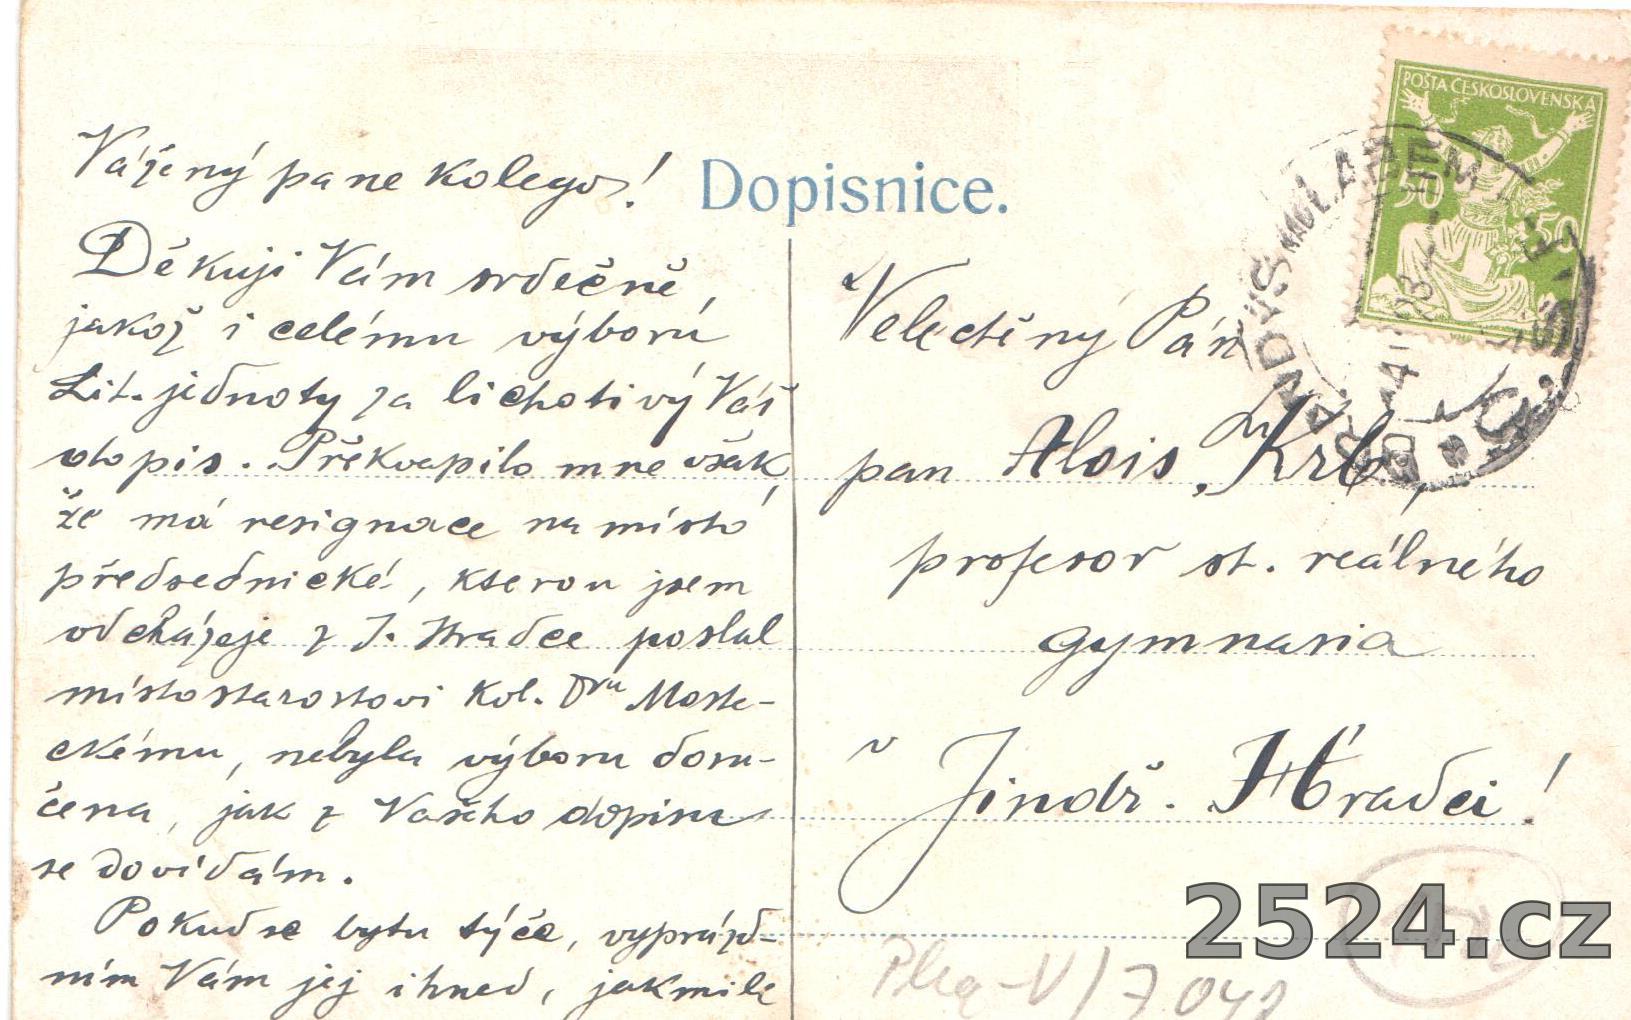 Vážený pane kolego!
Děkuji Vám srdečně,
jakož i celému výboru
Lit. jednoty za lichotivý Váš
dopis. Překvapilo mne však,
že má resignace na místo
předsednické, kterou jsem
odcházeje z J. Hradce poslal
místostarostovi kol. Dru Moste-
ckému, nebyla výboru doru-
čena, jak z Vašeho dopisu
se dovídám.
Pokud se bytu týče, vyprázd-
ním Vám jej ihned, jakmile
Dopisnice.
POŠTA ČESKOSLOVENSKÁ
50 50
BRANDÝS NAD LABEM
Velectěný Pán
pan Alois Krb,
profesor st. reálného
gymnasia
v
Jindř. Hradci!
2524.cz